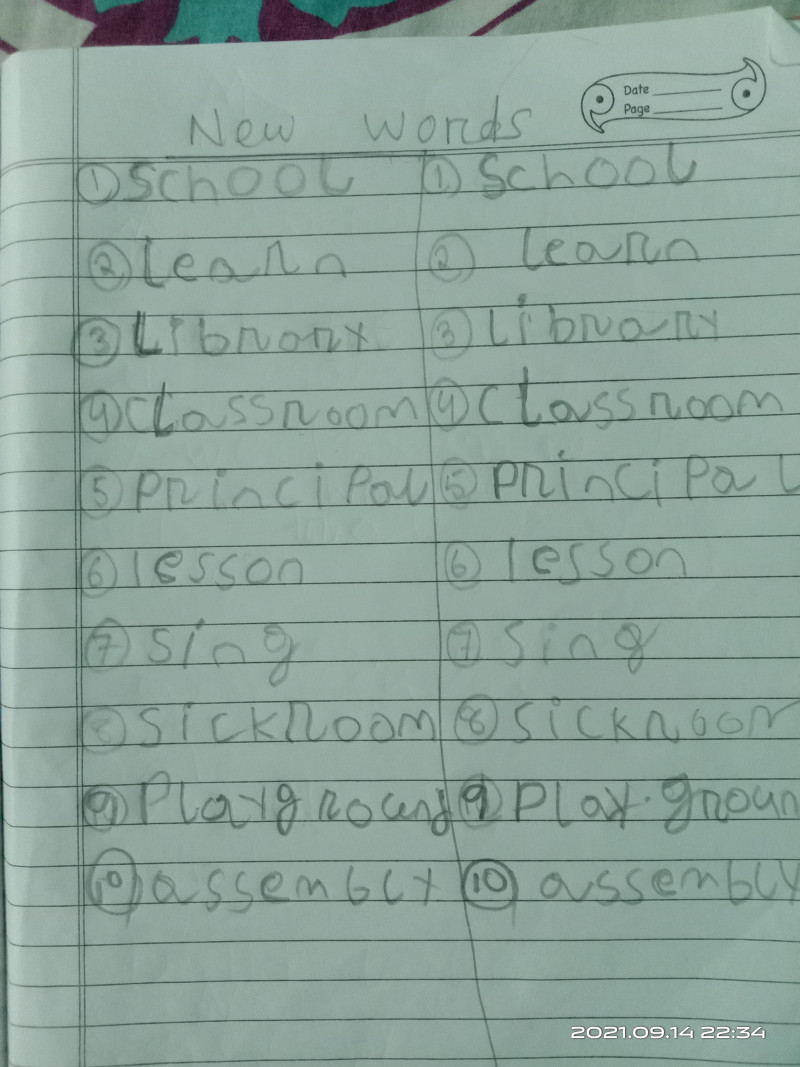 Date
Page
New words
① School ① School
② learn ② learn
③ Library ③ Library
④ Classroom ④ Classroom
⑤ Principal ⑤ Principal
⑥ lesson ⑥ lesson
⑦ Sing ⑦ Sing
⑧ SickRoom ⑧ Sickroom
⑨ Playground ⑨ Play.groun
⑩ assembly ⑩ assembly
2021.09.14 22:34